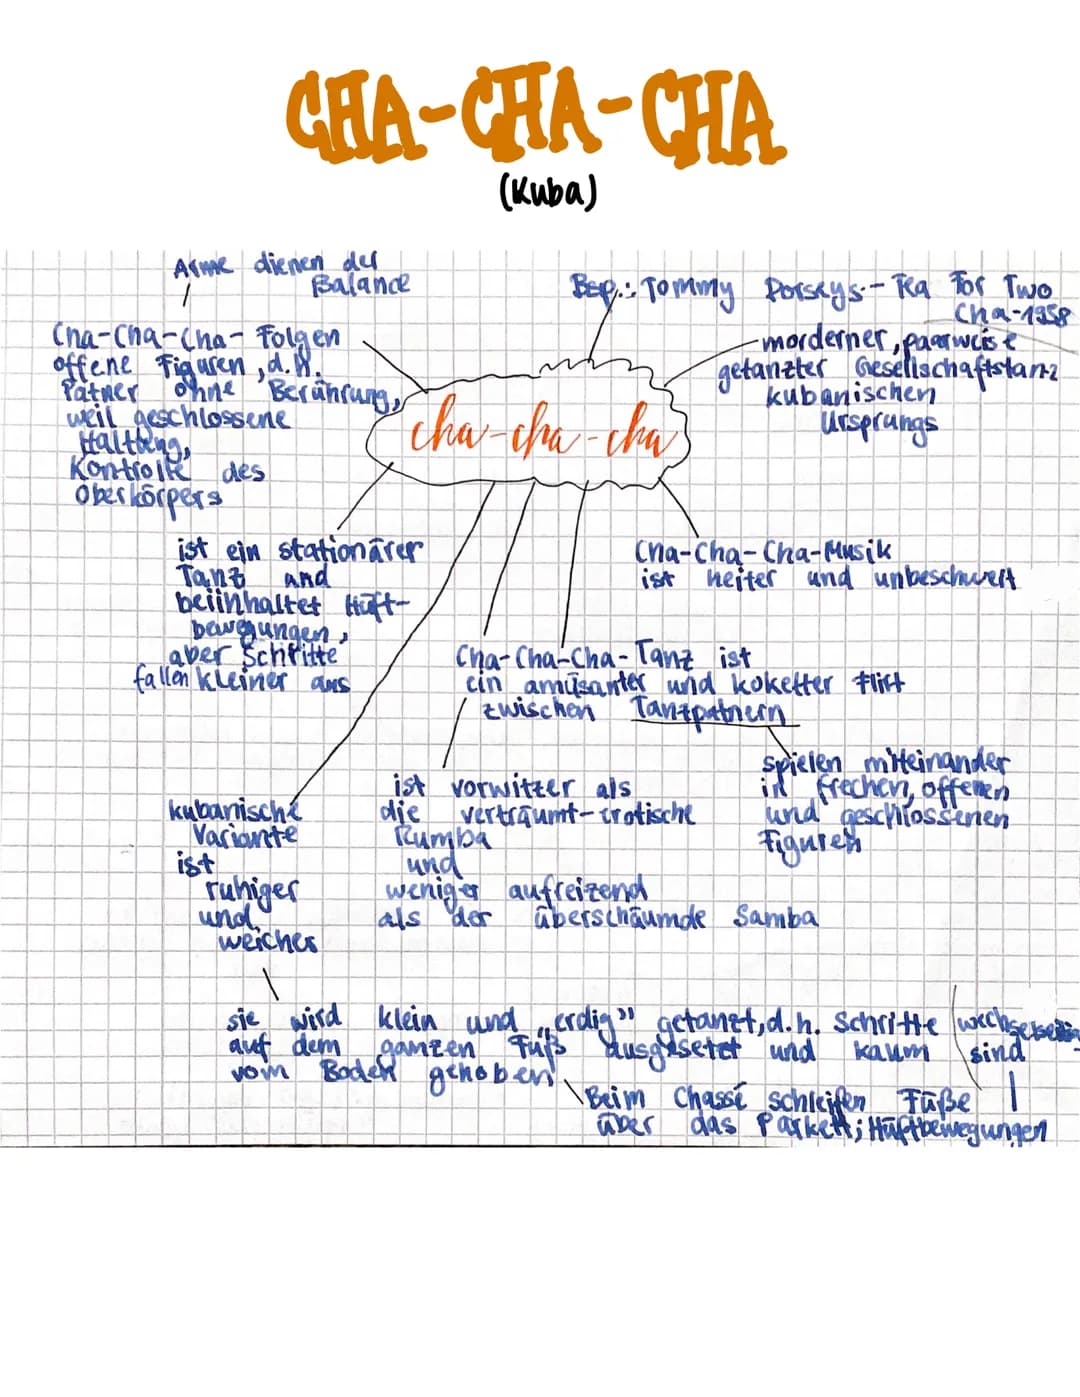 CHA-CHA-CHA
(Kuba)
Arme dienen der
Balance
Cha-Cha-Cha- Folgen
offene Figuren, d.h.
Patner ohne Berührung,
weil geschlossene
Haltung,
Kontrolle des
Oberkörpers
Bsp.: Tommy Dorseys - Tea For Two
Cha-1958
morderner, paarweise
getanzter Gesellschaftstanz
kubanischen
Ursprungs
cha-cha-cha
ist ein stationärer
Tanz und
beiinhaltet Hüft-
bewegungen,
aber Schritte
fallen kleiner aus
Cha-Cha-Cha-Musik
ist heiter und unbeschwert
Cha-Cha-Cha-Tanz ist
ein amüsanter und koketter Flirt
zwischen Tanzpatnern
spielen miteinander
in frechen, offenen
und geschlossenen
Figuren
ist vorwitzer als
die verträumt-erotische
Rumba
und
weniger aufreizend
als der überschäumde Samba
kubanische
Variante
ist
ruhiger
und
weicher
sie wird klein und „erdig" getanzt, d.h. Schritte wechselseitig
auf dem ganzen Fuß ausgesetzt und kaum sind
vom Boden gehoben
Beim Chassé schleifen Füße
über das Parkett; Hüftbewegungen